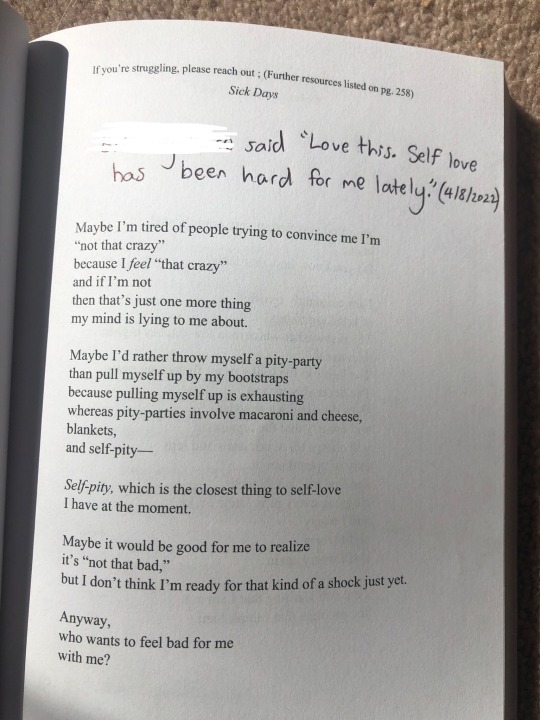 If you're struggling, please reach out ; (Further resources listed on pg. 258)
Sick Days
said "Love this. Self love
has been hard for me lately." (4/8/2022)
Maybe I'm tired of people trying to convince me I'm
"not that crazy"
because I feel "that crazy"
and if I'm not
then that's just one more thing
my mind is lying to me about.
Maybe I'd rather throw myself a pity-party
than pull myself up by my bootstraps
because pulling myself up is exhausting
whereas pity-parties involve macaroni and cheese,
blankets,
and self-pity—
Self-pity, which is the closest thing to self-love
I have at the moment.
Maybe it would be good for me to realize
it's "not that bad,"
but I don't think I'm ready for that kind of a shock just yet.
Anyway,
who wants to feel bad for me
with me?